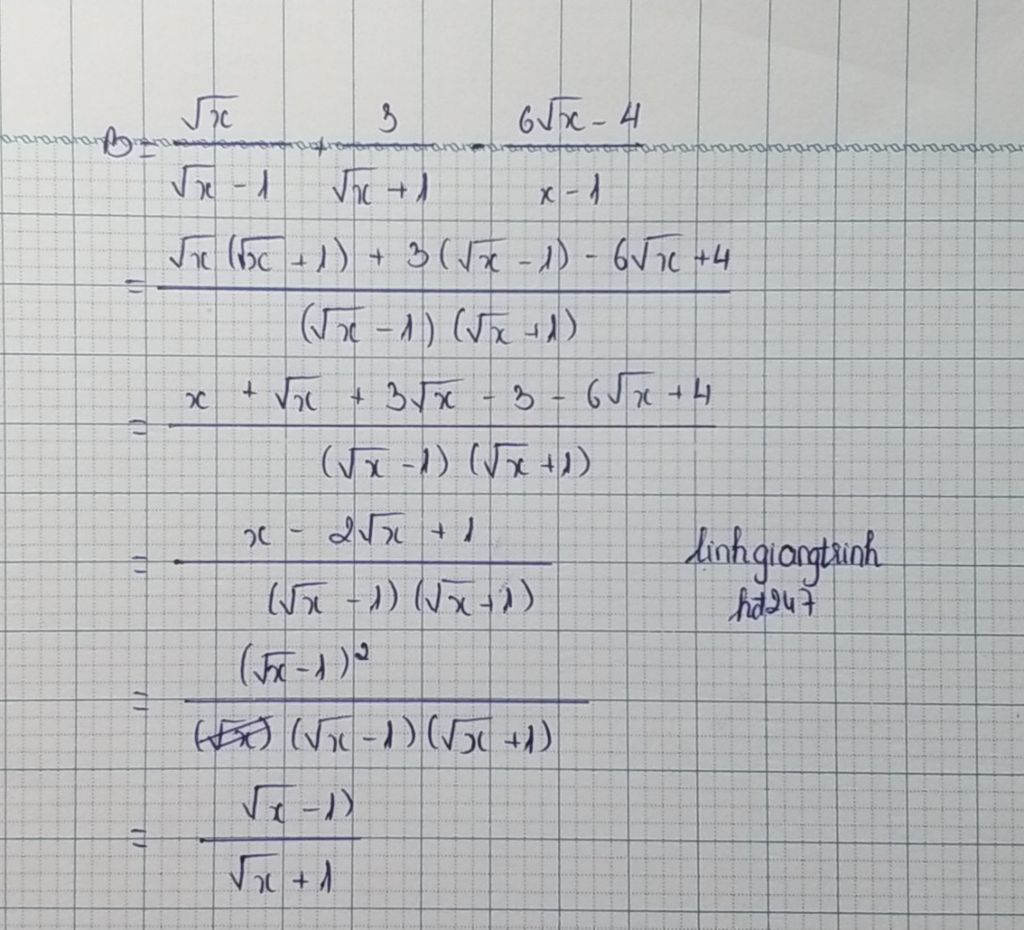 B = √x/(√x - 1) + 3/(√x + 1) - (6√x - 4)/(x - 1)
= (√x(√x + 1) + 3(√x - 1) - 6√x + 4)/((√x - 1)(√x + 1))
= (x + √x + 3√x - 3 - 6√x + 4)/((√x - 1)(√x + 1))
= (x - 2√x + 1)/((√x - 1)(√x + 1))
linhgiangtrinh
hd247
= (√x - 1)²/((√x - 1)(√x + 1))
= (√x - 1)/(√x + 1)